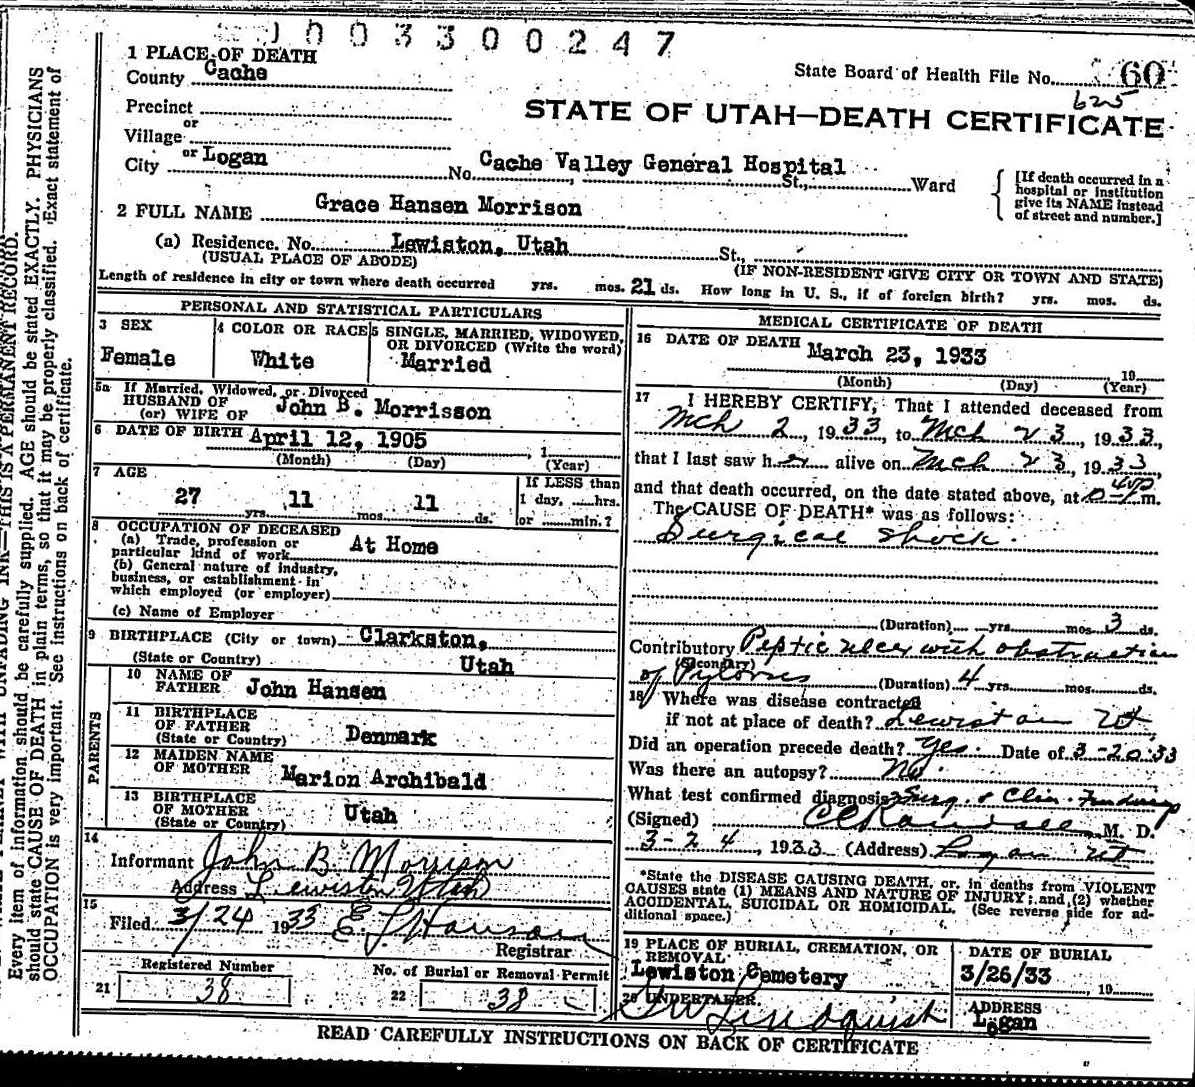 1003300247
1 PLACE OF DEATH
County Cache
State Board of Health File No. 60
625
Precinct
or
Village
STATE OF UTAH—DEATH CERTIFICATE
or
City Logan No. Cache Valley General Hospital St., Ward
[If death occurred in a hospital or institution give its NAME instead of street and number.]
2 FULL NAME Grace Hansen Morrison
(a) Residence. No. Lewiston, Utah St.,
(USUAL PLACE OF ABODE) (IF NON-RESIDENT GIVE CITY OR TOWN AND STATE)
Length of residence in city or town where death occurred yrs. mos. 21 ds. How long in U. S., if of foreign birth? yrs. mos. ds.
PERSONAL AND STATISTICAL PARTICULARS
3 SEX
Female
4 COLOR OR RACE
White
5 SINGLE, MARRIED, WIDOWED,
OR DIVORCED (Write the word)
Married
5a If Married, Widowed, or Divorced
HUSBAND OF
(or) WIFE OF John B. Morrisson
6 DATE OF BIRTH April 12, 1905 , 1
(Month) (Day) (Year)
7 AGE
27 yrs. 11 mos. 11 ds.
If LESS than
1 day, hrs.
or min.?
8 OCCUPATION OF DECEASED
(a) Trade, profession or
particular kind of work At Home
(b) General nature of industry,
business, or establishment in
which employed (or employer)
(c) Name of Employer
9 BIRTHPLACE (City or town) Clarkston,
(State or Country) Utah
PARENTS
10 NAME OF
FATHER John Hansen
11 BIRTHPLACE
OF FATHER
(State or Country) Denmark
12 MAIDEN NAME
OF MOTHER Marion Archibald
13 BIRTHPLACE
OF MOTHER
(State or Country) Utah
14
Informant John B. Morrison
Address Lewiston Utah
15
Filed 3/24 1933 E L Hanson
Registrar
Registered Number
21 38
No. of Burial or Removal Permit
22 38
MEDICAL CERTIFICATE OF DEATH
16 DATE OF DEATH March 23, 1933 19
(Month) (Day) (Year)
17 I HEREBY CERTIFY, That I attended deceased from
Mch 2, 1933, to Mch 23, 1933,
that I last saw her alive on Mch 23, 1933,
and that death occurred, on the date stated above, at m.
The CAUSE OF DEATH* was as follows:
Surgical Shock.
(Duration) yrs. mos. 3 ds.
Contributory Peptic ulcer with obstruction
(Secondary)
of Pylorus (Duration) 4 yrs. mos. ds.
18 Where was disease contracted
if not at place of death? Lewiston Ut
Did an operation precede death? Yes. Date of 3-20-33
Was there an autopsy? No.
What test confirmed diagnosis? Surg. & Clin. Findings
(Signed) C C Randall M. D.
3-24, 1933 (Address) Logan Ut
*State the DISEASE CAUSING DEATH, or, in deaths from VIOLENT
CAUSES state (1) MEANS AND NATURE OF INJURY; and (2) whether
ACCIDENTAL, SUICIDAL OR HOMICIDAL. (See reverse side for ad-
ditional space.)
19 PLACE OF BURIAL, CREMATION, OR
REMOVAL
Lewiston Cemetery
DATE OF BURIAL
3/26/33 , 19
20 UNDERTAKER
G W Lindquist
ADDRESS
Logan
READ CAREFULLY INSTRUCTIONS ON BACK OF CERTIFICATE
UNFADING INK—THIS IS A PERMANENT RECORD.
Every item of information should be carefully supplied. AGE should be stated EXACTLY. PHYSICIANS
should state CAUSE OF DEATH in plain terms, so that it may be properly classified. Exact statement of
OCCUPATION is very important. See instructions on back of certificate.